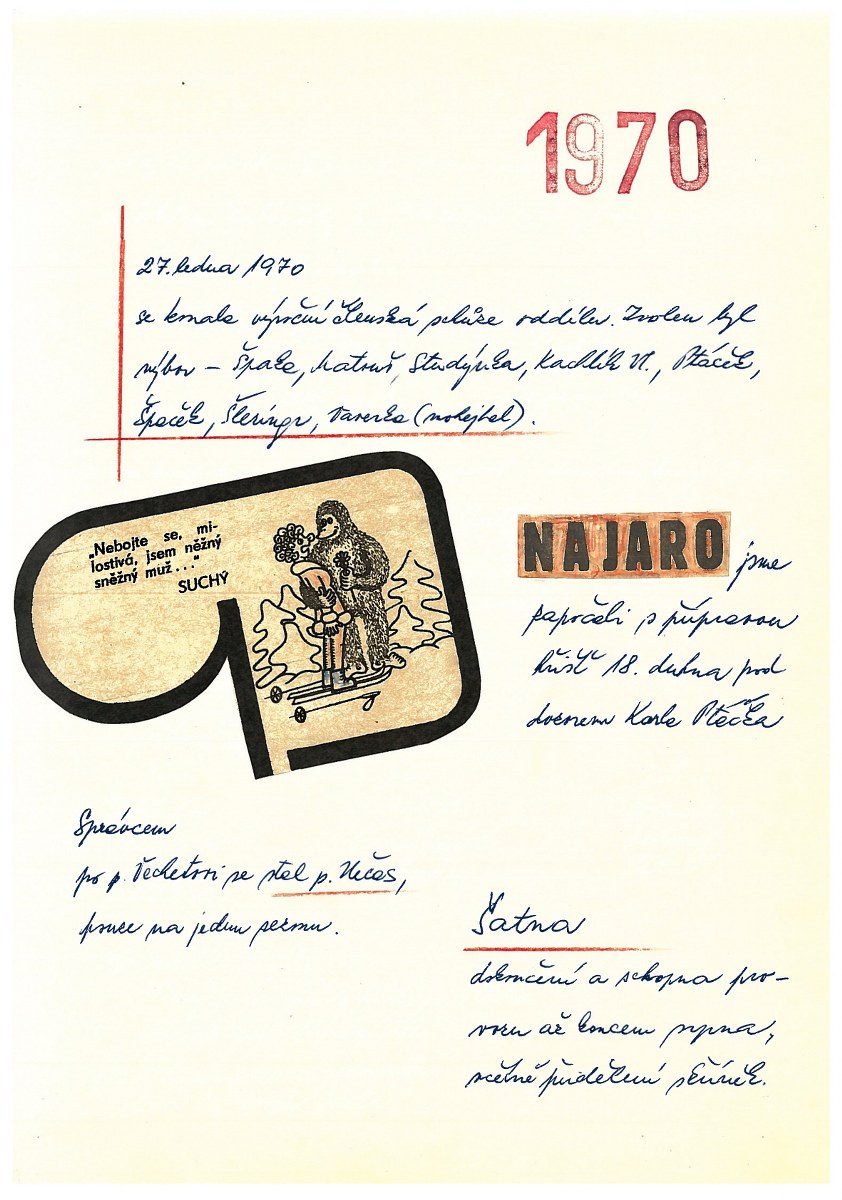 1970
27. ledna 1970
se konala výroční členská schůze oddílu. Zvolen byl
výbor – Špaka, Matouš, Studýnka, Kachlík Vl., Ptáček,
Špaček, Šleringr, Vaverka (nohejbal).
„Nebojte se, mi-
lostivá, jsem něžný
sněžný muž..."
SUCHÝ
NA JARO jsme
započali s přípravou
hřišť 18. dubna pod
dozorem Karla Ptáčka
Správcem
po p. Vechetovi se stal p. Nečas,
pouze na jednu sezonu.
Šatna
dokončení a schopna pro-
vozu až koncem srpna,
včetně přidělení skříněk.